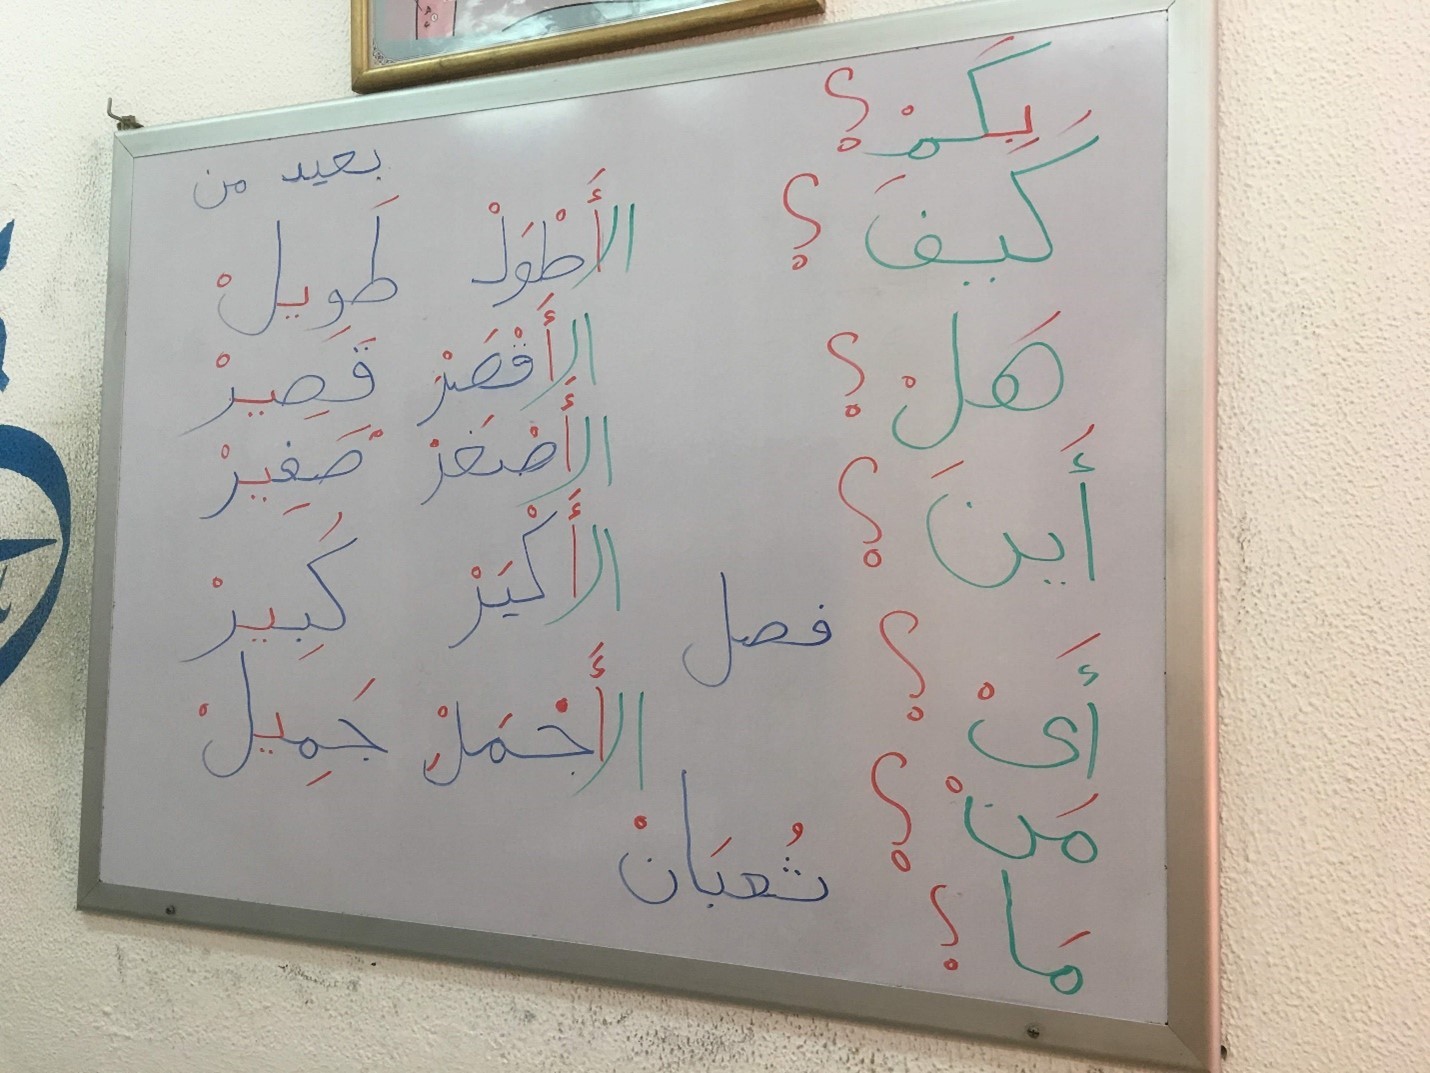 بِكَمْ ؟
كَيفَ ؟
هَلْ ؟
أَينَ ؟
أَىْ ؟
مَنْ ؟
مَا ؟
بعيد من
الأَطْوَلْ طَوِيلْ
الأَقْصَرْ قَصِيرْ
الأَصْغَرْ صَغِيرْ
الأَكْبَرْ كَبِيرْ
الأَجْمَلْ جَمِيلْ
فصل
ثُعبَانْ